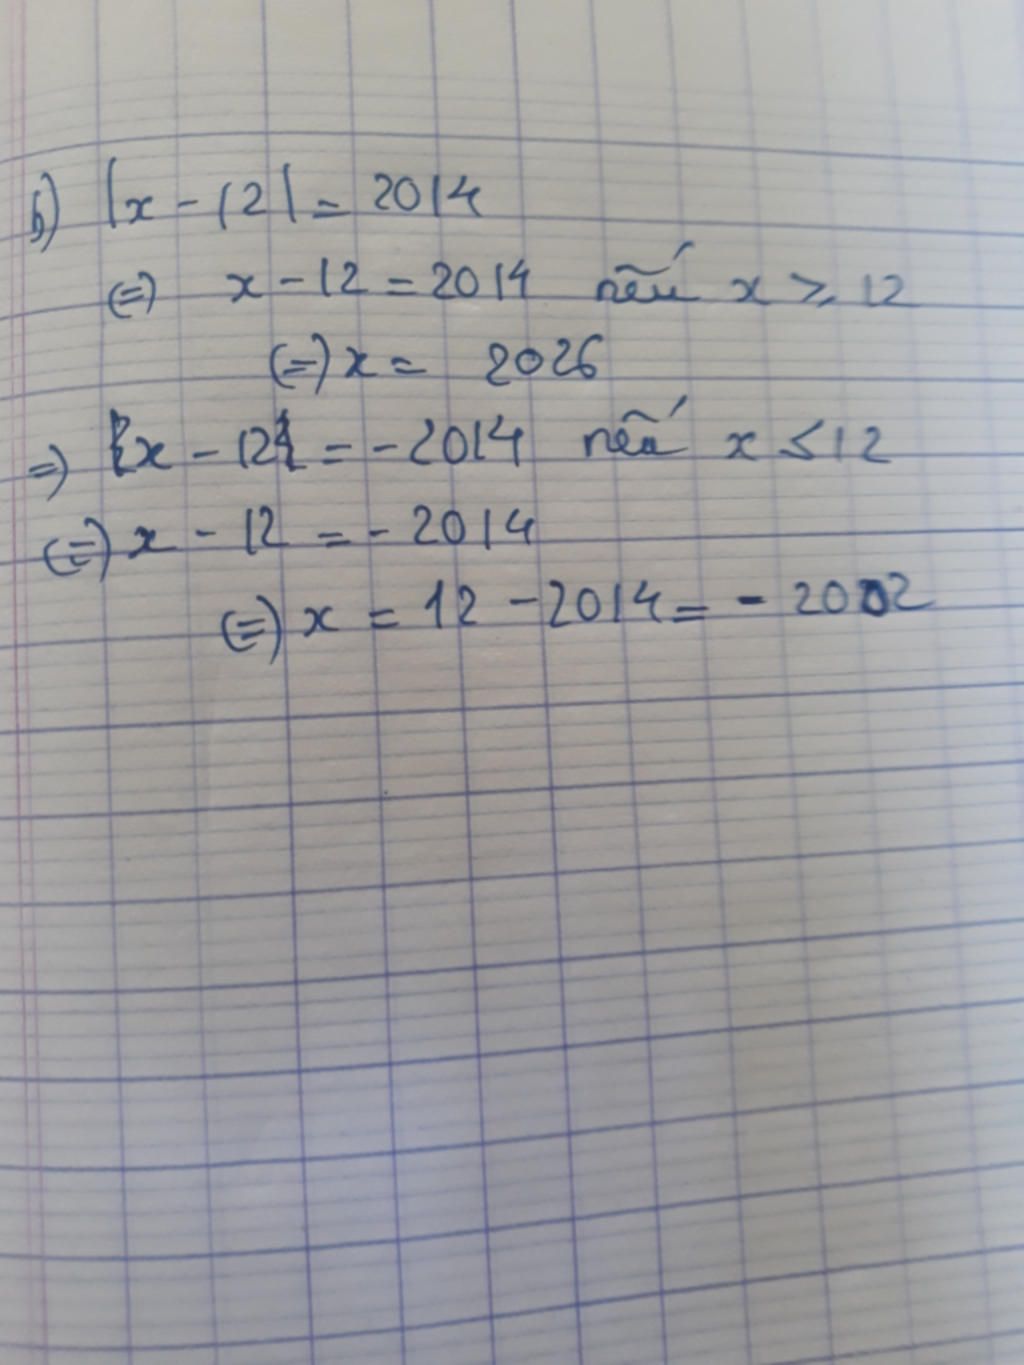 b) |x - 12| = 2014
(=) x - 12 = 2014 nếu x ≥ 12
(=) x = 2026
=) {x - 12} = - 2014 nếu x ≤ 12
(=) x - 12 = - 2014
(=) x = 12 - 2014 = - 2002